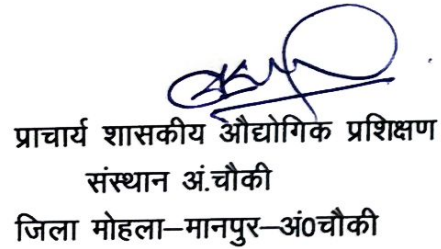 प्राचार्य शासकीय औद्योगिक प्रशिक्षण
संस्थान अं.चौकी
जिला मोहला–मानपुर–अं0चौकी